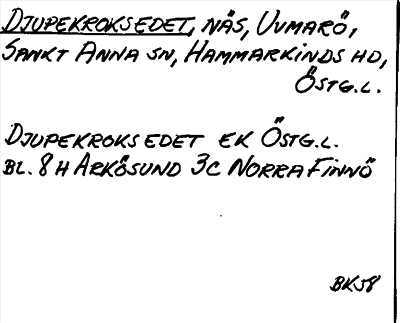 DJUPEKROKSEDET, NÄS, UVMARÖ,
SANKT ANNA SN, HAMMARKINDS HD,
ÖSTG.L.
DJUPEKROKSEDET EK ÖSTG.L.
BL. 8 H ARKÖSUND 3C NORRA FINNÖ
BK58